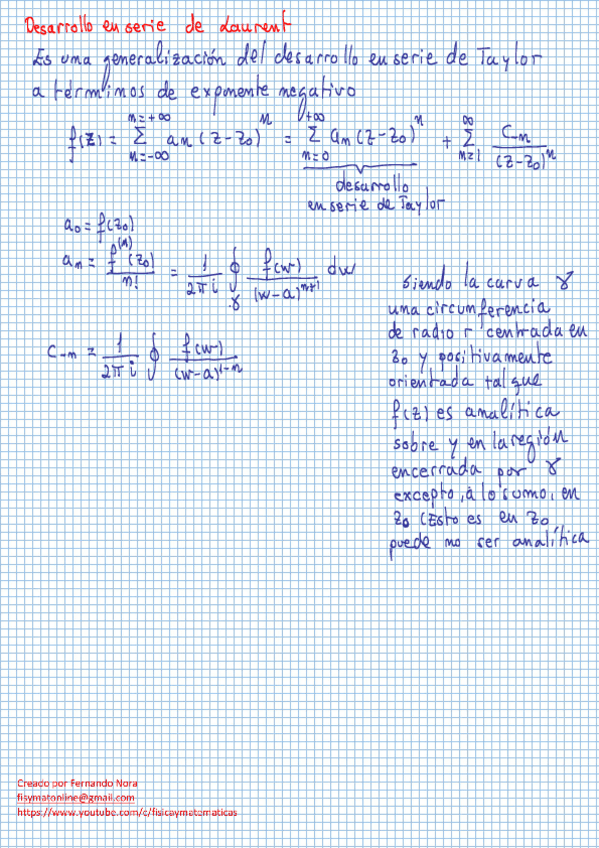 Desarrollo en serie de Laurent
Es una generalización del desarrollo en serie de Taylor
a términos de exponente negativo
f(z) = ∑_{n=-∞}^{n=+∞} a_n (z-z_0)^n = ∑_{n=0}^{+∞} a_n (z-z_0)^n + ∑_{n=1}^{∞} C_{-n}/(z-z_0)^n
desarrollo
en serie de Taylor
a_0 = f(z_0)
a_n = f^{(n)}(z_0)/n! = 1/(2πi) ∮_γ f(w)/(w-a)^{n+1} dw
C_{-n} = 1/(2πi) ∮ f(w)/(w-a)^{1-n}
Siendo la curva γ
una circumferencia
de radio r centrada en
z_0 y positivamente
orientada tal que
f(z) es analítica
sobre y en la región
encerrada por γ
excepto, a lo sumo, en
z_0 (Esto es en z_0
puede no ser analítica
Creado por Fernando Nora
fisymatonline@gmail.com
https://www.youtube.com/c/fisicaymatematicas